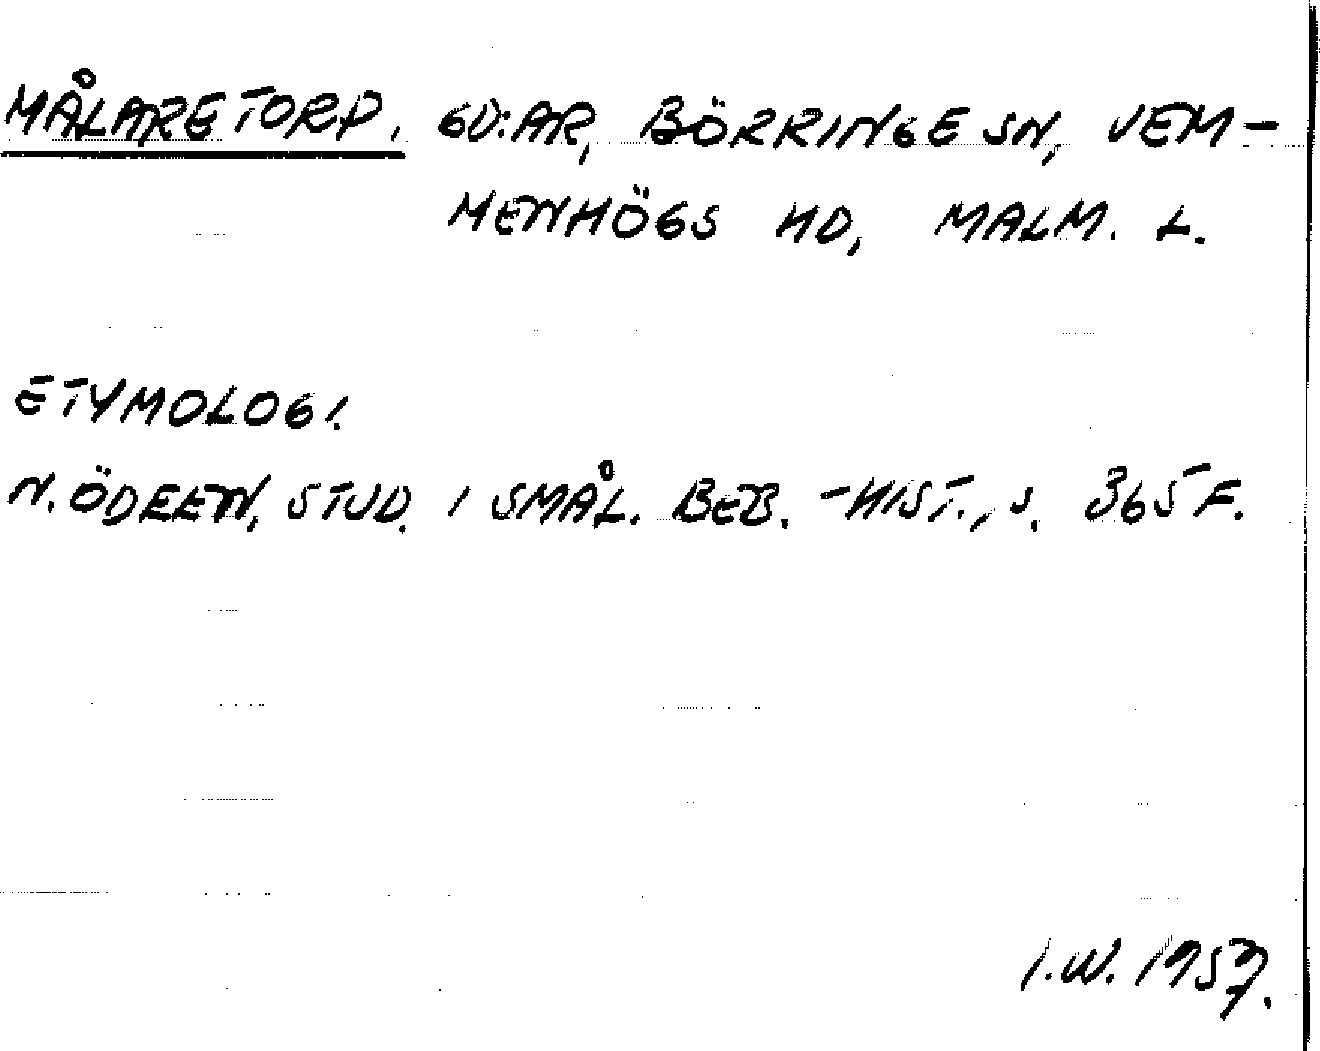 MÅLARETORP. GD:AR, BÖRRINGE SN, VEM-
MENHÖGS HD, MALM. L.
ETYMOLOGI.
N. ÖDEEN, STUD. I SMÅL. BEB.-HIST., S. 365 F.
I.W. 1957.